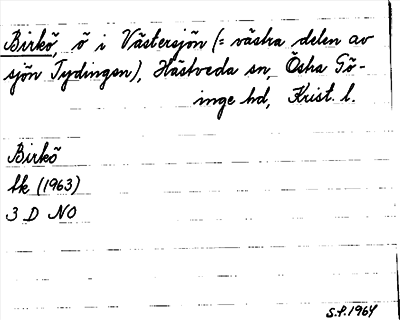 Birkö, ö i Västersjön (= västra delen av
sjön Tydingen), Hästveda sn, Östra Gö-
inge hd, Krist. l.
Birkö
Ek (1963)
3 D NO
S.F. 1964